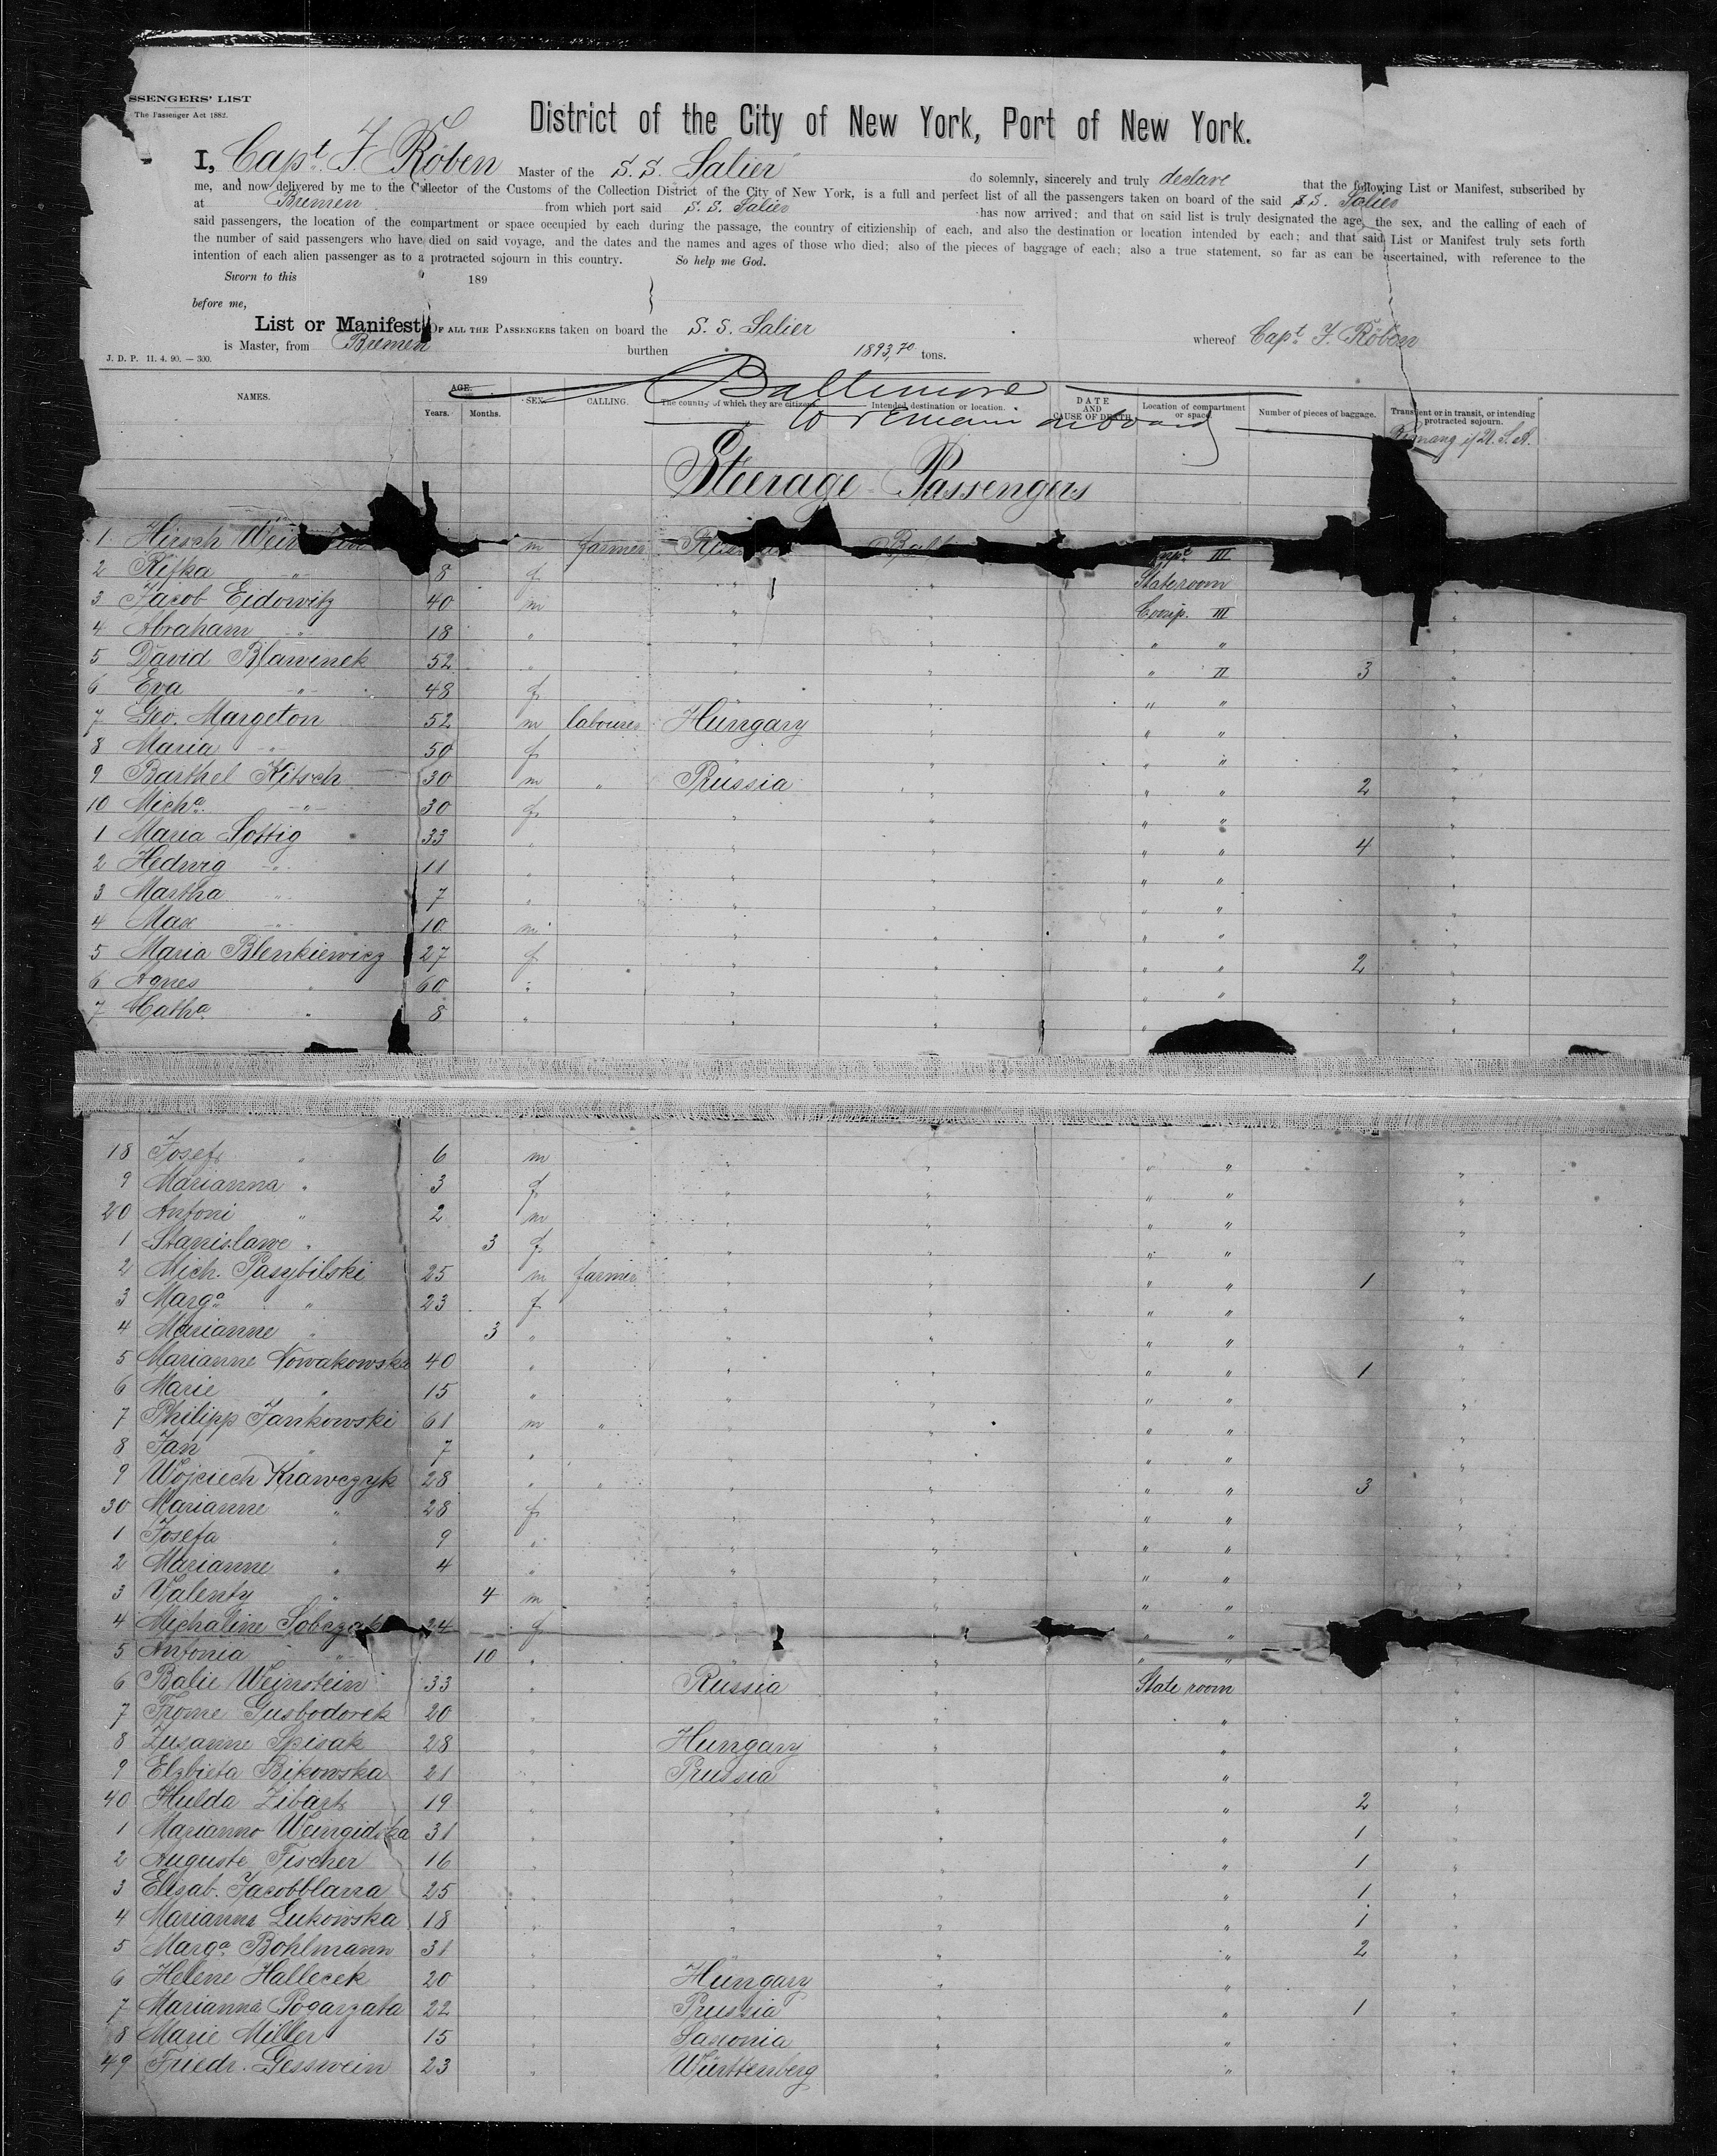 SSENGERS' LIST
The Passenger Act 1882.
District of the City of New York, Port of New York.
I, Capt. F. Röben Master of the S. S. Salier do solemnly, sincerely and truly declare that the following List or Manifest, subscribed by
me, and now delivered by me to the Collector of the Customs of the Collection District of the City of New York, is a full and perfect list of all the passengers taken on board of the said S. S. Salier
at Bremen from which port said S. S. Salier has now arrived; and that on said list is truly designated the age, the sex, and the calling of each of
said passengers, the location of the compartment or space occupied by each during the passage, the country of citizienship of each, and also the destination or location intended by each; and that said List or Manifest truly sets forth
the number of said passengers who have died on said voyage, and the dates and the names and ages of those who died; also of the pieces of baggage of each; also a true statement, so far as can be ascertained, with reference to the
intention of each alien passenger as to a protracted sojourn in this country. So help me God.
Sworn to this 189
before me,
List or Manifest OF ALL THE PASSENGERS taken on board the S. S. Salier whereof Capt. F. Röben
is Master, from Bremen burthen 1893,70 tons.
J. D. P. 11. 4. 90. — 300.
Baltimore
to remain aboard
NAMES. AGE. Years. Months. SEX. CALLING. The country of which they are citizens. Intended destination or location. DATE AND CAUSE OF DEATH Location of compartment or space. Number of pieces of baggage. Transient or in transit, or intending protracted sojourn.
of U. S. A.
Steerage Passengers
1 Hirsch m farmer III
2 Rifka " 8 f " " Stateroom "
3 Jacob Eidowitz 40 m " " Comp. III "
4 Abraham " 18 " " " " " "
5 David Blawinek 52 " " " " II 3 "
6 Eva " 48 f " " " "
7 Geo. Margeton 52 m labourer Hungary " " " "
8 Maria " 50 f " " "
9 Barthel Kitsch 30 m " Prussia " " " 2 "
10 Micha. " 30 f " " " " "
1 Maria Sottig 33 " " " " " 4 "
2 Hedwig " 11 " " " " " "
3 Martha " 7 " " " " " "
4 Max " 10 m " " " " "
5 Maria Blenkiewicz 27 f " " " " 2 "
6 Agnes " 60 " " " " " "
7 Catha. " 8 " " " " "
18 Josef " 6 m " " " " "
9 Marianna " 3 f " " " " "
20 Antoni " 2 m " " " "
1 Stanislawe " 3 f " " " " "
2 Mich. Pasybilski 25 m farmer " " " " 1 "
3 Marga. " 23 f " " " " "
4 Marianne " 3 " " " " " "
5 Marianne Nowakowska 40 " " " " " 1 "
6 Marie " 15 " " " " " "
7 Philipp Jankowski 61 m " " " " " "
8 Jan " 7 " " " " " "
9 Wojciech Krawczyk 28 " " " " " " 3 "
30 Marianne " 28 f " " " " "
1 Josefa " 9 " " " " " "
2 Marianne " 4 " " " " "
3 Valenty " 4 m " " " "
4 Michaline 24 f " "
5 Antonia " 10 " " " "
6 Balie Weinstein 33 " Russia " State room "
7 Frome Gusbodorek 20 " " " "
8 Zusanne Spisak 28 " Hungary " " "
9 Elzbieta Bikowska 21 " Prussia " "
40 Hulda Zibarts 19 " " " " 2 "
1 Marianno 31 " " " " 1 "
2 Auguste Fischer 16 " " " " 1 "
3 Elisab. Jacobblarra 25 " " " " 1 "
4 Marianna Lukowska 18 " " " " 1 "
5 Marga. Bohlmann 31 " " " 2 "
6 Helene Hallecek 20 " Hungary " " "
7 Marianna Pogarzata 22 " Prussia " " 1 "
8 Marie Miller 15 Saxonia " " "
49 Friedr. Gesswein 23 " Württemberg " " "